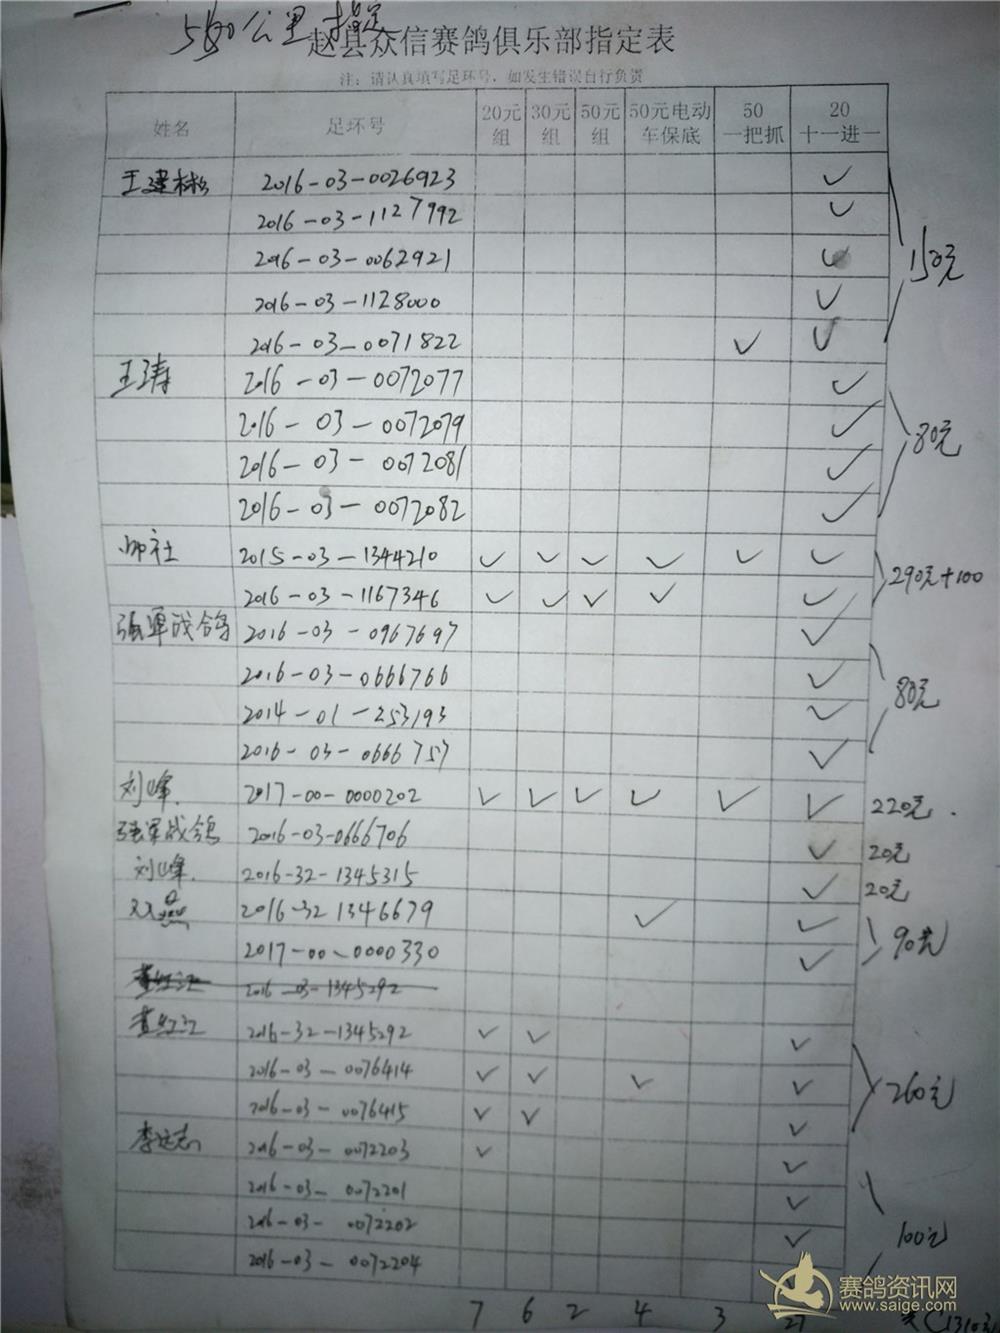 580公里指定
赵县众信赛鸽俱乐部指定表
注：请认真填写足环号，如发生错误自行负责
姓名 足环号 20元组 30元组 50元组 50元电动车保底 50一把抓 20十一进一
王建彬 2016-03-0026923 ✓
2016-03-1127992 ✓
2016-03-0062921 ✓ 150元
2016-03-1128000 ✓
2016-03-0071822 ✓ ✓
王涛 2016-03-0072077 ✓
2016-03-0072079 ✓ 80元
2016-03-0072081 ✓
2016-03-0072082 ✓
帅社 2015-03-1344210 ✓ ✓ ✓ ✓ ✓ ✓ 290元+100
2016-03-1167346 ✓ ✓ ✓ ✓ ✓
强军战鸽 2016-03-0967697 ✓
2016-03-0666766 ✓ 80元
2014-01-253193 ✓
2016-03-0666757 ✓
刘峰. 2017-00-0000202 ✓ ✓ ✓ ✓ ✓ ✓ 220元.
强军战鸽 2016-03-0666706 ✓ 20元
刘峰. 2016-32-1345315 ✓ 20元
2016-32 1346679 ✓ ✓ 90元
2017-00-0000330 ✓
2016-03-1345292
黄红江 2016-32-1345292 ✓ ✓ ✓
2016-03-0076414 ✓ ✓ ✓ ✓ 260元
2016-03-0076415 ✓ ✓ ✓
李运志 2016-03-0072203 ✓ ✓
2016-03-0072201 ✓
2016-03-0072202 ✓ 100元
2016-03-0072204 ✓
7 6 2 4 3 27
赛鸽资讯网
www.saige.com